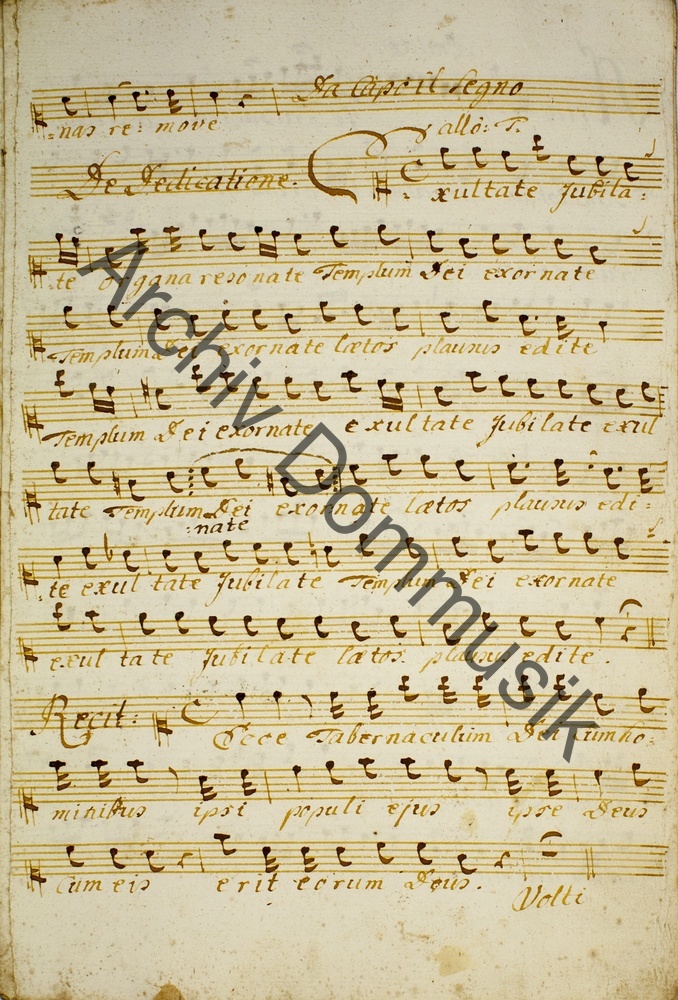 Da Capo il Segno
:nas re: move
allo: T.
De Dedicatione.
Exultate Jubila:
te organa resonate Templum Dei exornate
Templum Dei exornate lætos plausus edite
Templum Dei exornate exultate Jubilate exul
tate Templum Dei exornate lætos plausus edi:
:nate
:te exultate Jubilate Templum Dei exornate
exultate Jubilate lætos plausus edite.
Recit: Ecce Tabernaculum Dei cum ho:
minibus ipsi populi ejus ipse Deus
cum eis erit eorum Deus.
Volti
Archiv Dommusik